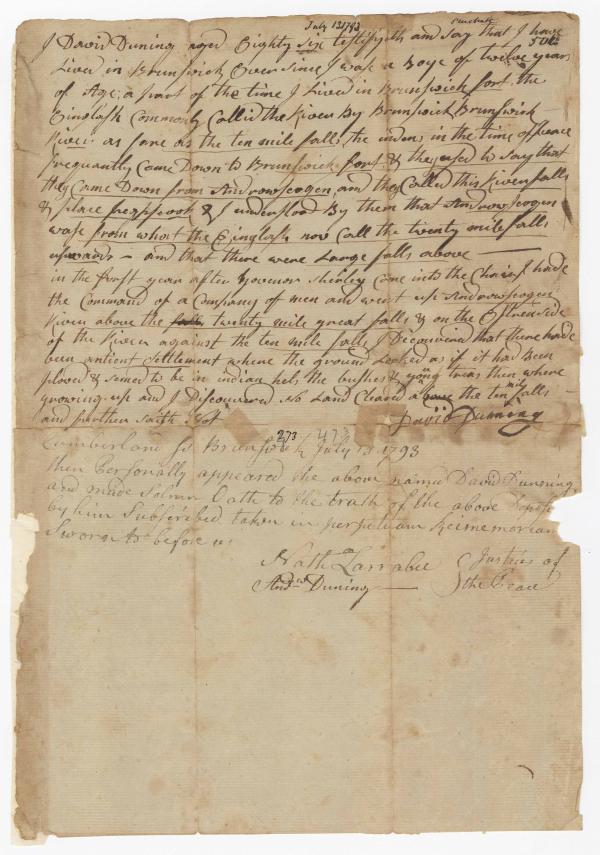 July 13 1793
I David Duning aged Eighty six testifyeth and say that I have
Lived in Brunswick Ever since I wase a Boye of twelve years
of Age; a part of the time I Lived in Brunswick fort the
Einglash Commonly Callid the River By Brunswick Brunswick
River as fare as the ten mile falls, the indens in the time of peace
frequantly Came Down to Brunswick fort & they used to Say that
they Came Down from Androwscogen, and they Called this River falls
& place & I understood By them that Androwscogen
wase from what the Einglash now Call the twenty mile falls
upwards — and that there were Large falls above
in the first year after Governor Shirley Came into the Chair I hade
the Command of a Company of men and went up Androwscogen
River above the falls twenty mile great falls & on the side
of the River against the ten mile falls I Discovered that there hade
been antient Settlement where the ground Looked as if it had Been
plowed & semed to be in indian hils the bushes & yong trees then where
growing up and I Discovered No Land Cleard above the ten mile falls
and further Saith Not
David Duning
273 473
Cumberland Ss Brunswick July 13 1793
then Personally appeared the above named David Dunning
and made Solemn Oath to the truth of the above
by him Subscribed taken in perpetuam Rei memoriam
Sworn to before us
Nathn Larrabee } Justices of
Andw Duning } the Peace